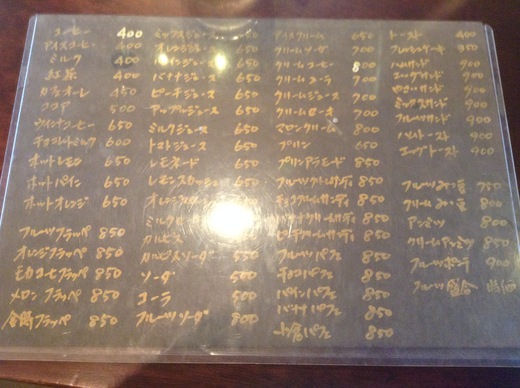 コーヒー 400
アイスコーヒー 400
ミルク 400
紅茶 400
カフェオーレ 450
ココア 500
ウインナコーヒー 650
チョコレートミルク 600
ホットレモン 650
ホットパイン 650
ホットオレンジ 650
フルーツフラッペ 850
オレンジフラッペ 850
モカコーヒフラッペ 850
メロンフラッペ 850
金時フラッペ 850
ミックスジュース 650
オレンジジュース 650
パインジュース 650
バナナジュース 650
ピーチジュース 650
アップルジュース 650
ミルクジュース 650
トマトジュース 650
レモネード 650
レモンスカッシュ 650
オレンジ
ミルク
カルピス
カルピスソーダ 550
ソーダ 500
コーラ 500
フルーツソーダ 800
アイスクリーム 650
クリームソーダ 700
クリームコーヒー 800
クリームコーラ 700
クリームジュース 700
クリームセーキ 700
マロンクリーム 800
プリン 650
プリンアラモード 850
フルーツクリームサンデー 850
チョコクリームサンデー 850
850
ピーチクリームサンデー 850
フルーツパフェ 850
チョコパフェ 850
パインパフェ 850
バナナパフェ 850
小倉パフェ 850
トースト 400
フレッシュケーキ 350
ハムサンド 900
エッグサンド 900
900
ミックスサンド 900
フルーツサンド 900
ハムトースト 900
エッグトースト 900
フルーツみつ豆 750
クリームみつ豆 800
アンミツ 800
クリームアンミツ 850
フルーツポンチ 900
フルーツ盛合 時価